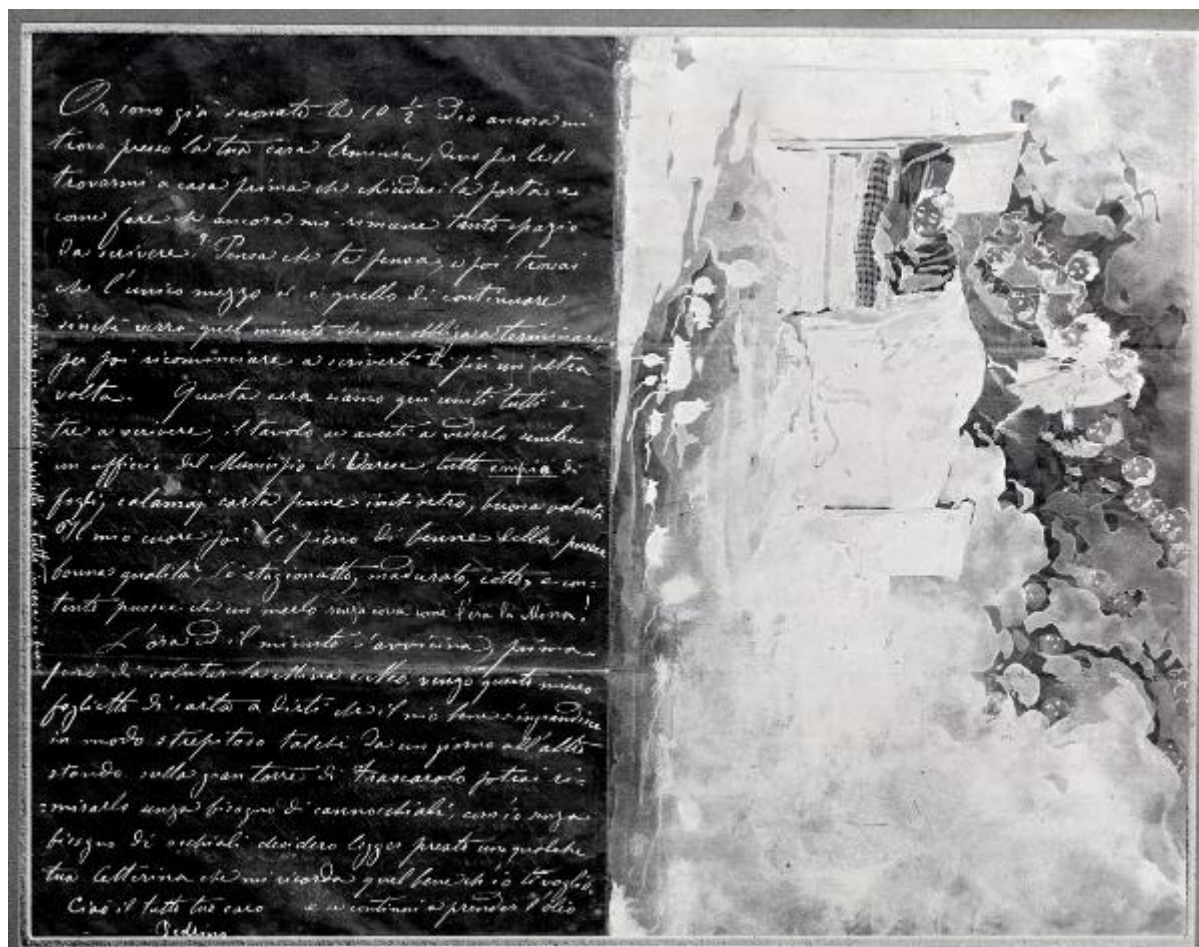 Or sono già suonate le 10 ½ Dio ancora mi
trovo presso la tua cara Erminia, devo per le 11
trovarmi a casa prima che chiudasi la porta e
come fare che ancora mi rimane tanto spazio
da scrivere? Pensa che te pensa, e poi trovai
che l'unico mezzo si è quello di continuare
sinchè verrà quel minuto che mi obbligarà terminare
per poi ricominciare a scriverti di più un'altra
volta. Questa sera siamo qui uniti tutti e
tre a scrivere, il tavolo se avesti a vederlo sembra
un officio del Municipio di Varese tutto empia di
foglj calamaj carta penne inchiostro, buona volontà
Il mio cuore poi l'è pieno di benne della
bonna qualità, l'è stagionatto, madurato, cotto, e con-
tento pussee che un merlo senza cova come l'era la Mora!
L'ora ed il minuto s'avvicina, prima
però di salutar la Ninia colle, vengo questo misero
foglietto di carta a dirti che il mio bene s'ingrandisce
in modo strepitoso talchè da un giorno all'altro
stando sulla gran torre di Frascarolo potrai ri-
mirarlo senza bisogno di cannocchiali, com'io senza
bisogno di occhiali desidero legger presto una qualche
tua letterina che mi ricorda quel bene ch'io ti voglio.
Ciao il tutto tuo caro e se continui a prender l'olio